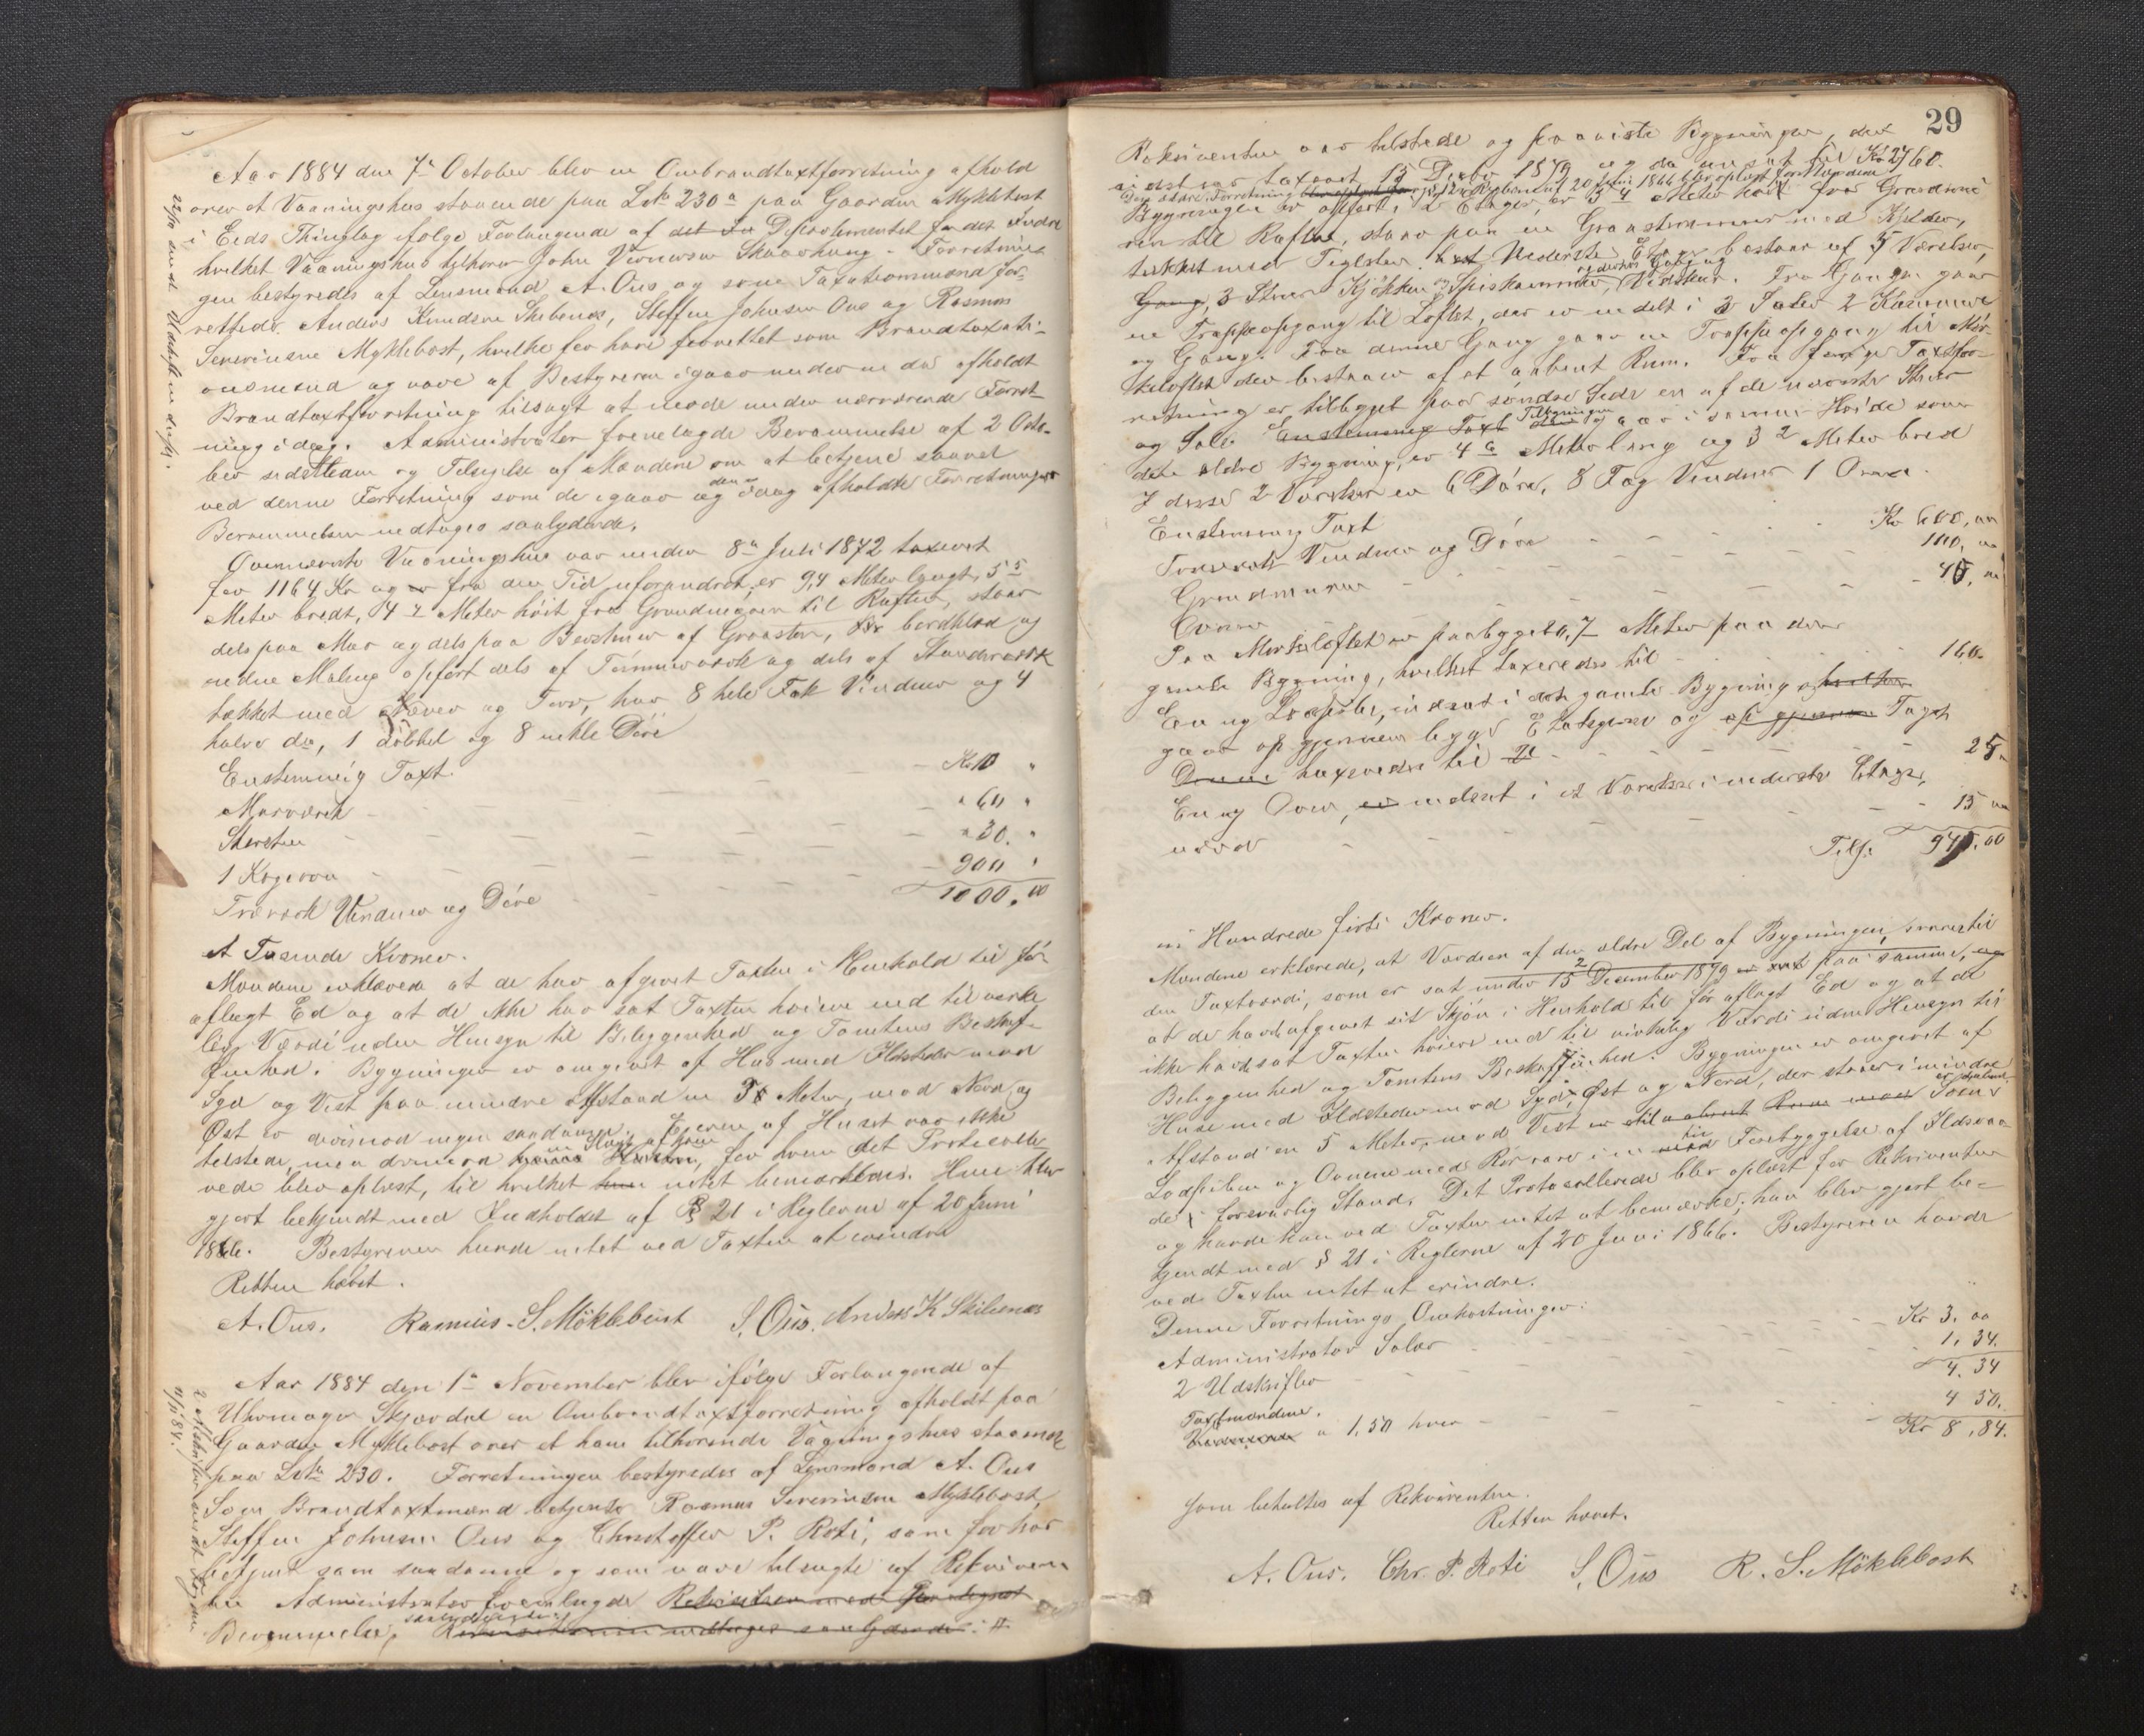 Aar 1884 den 7de October blev en Ombrandtaxtforretning afhold
over et Vaaningshus staaende paa Lno 230a paa Gaarden Myklebost
i Eeds Thinglag ifølge Forlangende af det
hvilket Vaaningshus tilhører John Forretnin
gen bestyredes af Lensmand A. Ous og som Taxationsmænd for-
rettede Anders Knudsen Skibenes, Steffen Johnsen Ous og Rasmus
Severinsen Myklebost, hvilke før have forrettet som Brandtaxati-
onsmænd og vare af Bestyreren igaar under en da afholdt
Brandtaxtforretning tilsagt at møde under nærværende Forret-
ning idag. Administrator fremlagde Berammelse af 2 Octo-
ber sidstleden og Tilsigelse af Mændene om at betjene saavel
ved denne Forretning som de igaar og den idag afholdte Forretninger
Berammelsen indtages saalydende.
Ovennævnte Vaaningshus var under 8de Juli 1872 taxeret
for 1164 Kr og er fra den Tid uforandret, er 9,4 Meter langt, 5 5
Meter bredt, 4 7 Meter höit fra Grundmuren til Raftet, staar
dels paa Mur og dels paa af Graasten, bordklæd og
uden Maling opfört dels af Tömmerværk og dels af Standværk
tækket med Næver og Torv, har 8 hele Fak Vinduer og 4
halve do, 1 dobbel og 8 enkle Döre
Enstemmig Taxt.
Murværk - Kr 10 "
Skorsten - " 60 "
1 Kogeovn - " 30. "
Træværk Vinduer og Döre - 900 "
1000,00
Et Tusinde Kroner.
Mændene erklærede at de har afgivet Taxten i Henhold til för
aflagt Ed og at de ikke har sat Taxten höiere end til virke
lig Værdi uden Hensyn til Beliggenhed og Tomtens Beskaf-
fenhed. Bygningen er omgivet af Hus med Ildsteder mod
Syd og Vest paa mindre Afstand en 5 Meter, mod Nord og
Öst er derimod ingen saadanne. Eieren af Huset var ikke
tilstede, men derimod, for hvem det Protocolle
rede blev oplæst, til hvilket intet bemærkedes. Hun blev
gjort bekjendt med Indholdet af § 21 i Reglerne af 20 Juni
1866. Bestyreren havde intet ved Taxten at erindre
Retten hævet.
A. Ous. Rasmus. S. Möklebust S. Ous. Anders K Skibenæs
22/10 sendt Udskrift
Aar 1884 den 1de November blev ifölge Forlangende af
Uhrmager Skjærdal en Ombrandtaxtforretning afholdt paa
Gaarden Myklebost over et ham tilhörende Vaaningshus staaende
paa Lno 230. Forretningen bestyredes af Lensmand A. Ous
Som Brandtaxtmænd betjente Rasmus Severinsen Myklebost,
Steffen Johnsen Ous og Christoffer P. Roti, som för har
betjent som saadanne og som vare tilsagte af Rekvirenn
ten Administrator fremlagde Rekvisition med
Berammelse, saalydende
2 Afskrifter sendt
11/11 84.
29
Rekvirenten var tilstede og paaviste Bygningen, der
sidst var taxeret 15 Decbr 1879 og da ansat til Kr 2760.
Bygningen er opfört i 2 Etager, er 5 4 Meter höit fra Grundmu
ren til Raftet, staar paa en Graastensmur med Kjelder,
tækket med Teglsten. Nederste Etage bestaar af 5 Værelser,
Gang, 3 Stuer Kjökken og Spiskammer, nederst Gang og. Fra Gangen gaar
en Trappeopgang til Loftet, der er inddelt i 3 Sale 2 Kammere
og Gang. Fra denne Gang gaar en Trappeopgang til Mör-
keloftet der bestaar af et aabent Rum. Fra forrige Taxtfor-
retning er tilbygget paa söndre Side en af de nævnte Stuer
og Sale. Enstemmig Taxt Tilbygningen gaar i samme Höide som
den ældre Bygning, er 4 6 Meter lang og 3 2 Meter bred
I disse 2 Værelser er 6 Döre, 8 Fag Vinduer 1 Ovn.
Enstemmig Taxt
Træværk Vinduer og Döre - Kr 600,00
Grundmuren - 100,00
Ovnen - 45,00
Paa Mörkeloftet er paabygget 0,7 Meter paa den
gamle Bygning, hvilket taxeredes til - 160.
En ny Lodpibe, indsat i den gamle Bygning og
gaar op gjennem begge Etagerne og Taget
Denne taxeredes til - 25.
En ny Ovn, indsat i et Værelse i nederste Etage,
værd - 15 00
Tils. 945.00
ni Hundrede förti Kroner.
Mændene erklærede, at Værdien af den ældre Del af Bygningen svarer til
den Taxtværdi, som er sat under 15 December 1879 paa samme,
at de havde afgivet sit Skjön i Henhold til för aflagt Ed og at de
ikke havde sat Taxten höiere end til virkelig Værdi uden Hensyn til
Beliggenhed og Tomtens Beskaffenhed. Bygningen er omgivet af
Huse med Ildsteder mod Syd, Öst og Nord, der staar i mindre
Afstand en 5 Meter, mod Vest
Lodpiben og Ovnene med Rör vare i en til Forebyggelse af Ildsvaa-
de forsvarlig Stand. Det Protocollerede blev oplæst for Rekvirenten
og havde han ved Taxten intet at bemærke; han blev gjort be-
kjendt med § 21 i Reglerne af 20 Juni 1866. Bestyreren havde
ved Taxten intet at erindre.
Denne Forretnings Omkostninger:
Administrator Salær - Kr 3.00
2 Udskrifter - 1.34.
4.34
Taxtmændene.
a 1,50 hver - 4 50.
Kr 8,84.
som betaltes af Rekvirenten.
Retten hævet.
A. Ous. Chr. P. Roti S. Ous R. S. Möklebost